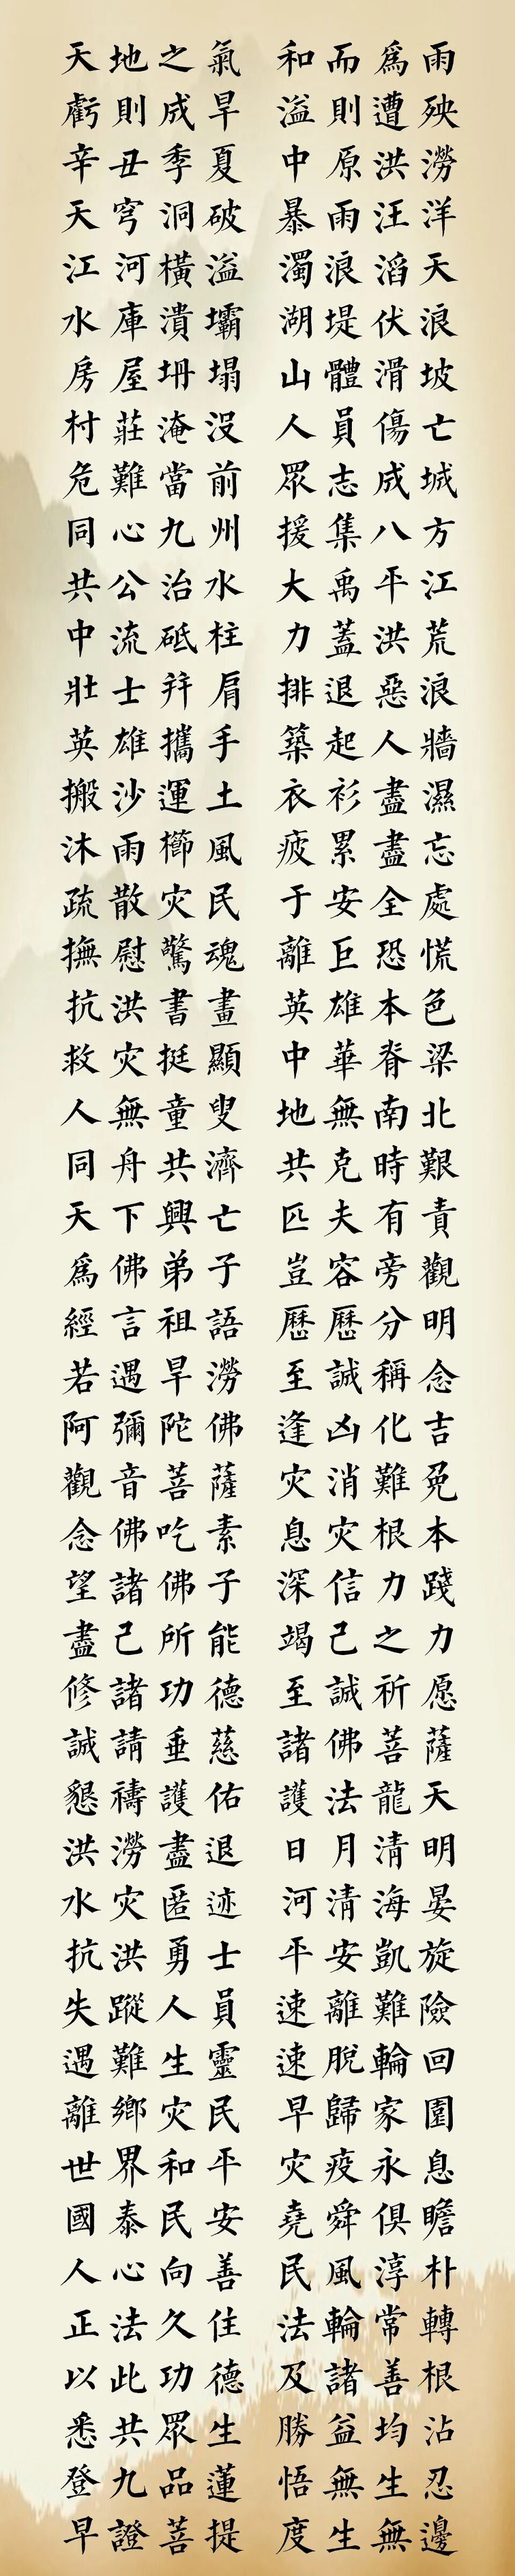 天地之氣 和而爲雨
虧則成旱 溢則遭殃
辛丑季夏 中原洪澇
天穹洞破 暴雨汪洋
江河橫溢 濁浪滔天
水庫潰壩 湖堤伏浪
房屋坍塌 山體滑坡
村莊淹没 人員傷亡
危難當前 眾志成城
同心九州 援集八方
共公治水 大禹平江
中流砥柱 力蓋洪荒
壯士并肩 排退惡浪
英雄攜手 築起人牆
搬沙運土 衣衫盡濕
沐雨櫛風 疲累盡忘
疏散灾民 于安全處
撫慰驚魂 離巨恐慌
抗洪書畫 英雄本色
救灾挺顯 中華脊梁
人無童叟 地無南北
同舟共濟 共克時艱
天下興亡 匹夫有責
爲佛弟子 豈容旁觀
經言祖語 歷歷分明
若遇旱澇 至誠稱念
阿彌陀佛 逢凶化吉
觀音菩薩 灾消難免
念佛吃素 息灾根本
望諸佛子 深信力踐
盡己所能 竭己之力
修諸功德 至誠祈愿
誠請垂慈 諸佛菩薩
懇禱護佑 護法龍天
洪澇盡退 日月清明
水灾匿迹 河清海晏
抗洪勇士 平安凱旋
失蹤人員 速離難險
遇難生靈 速脫輪回
離鄉灾民 早歸家園
世界和平 灾疫永息
國泰民安 堯舜俱瞻
人心向善 民風淳朴
正法久住 法輪常轉
以此功德 及諸善根
悉共眾生 勝益均沾
登九品蓮 悟無生忍
早證菩提 度生無邊